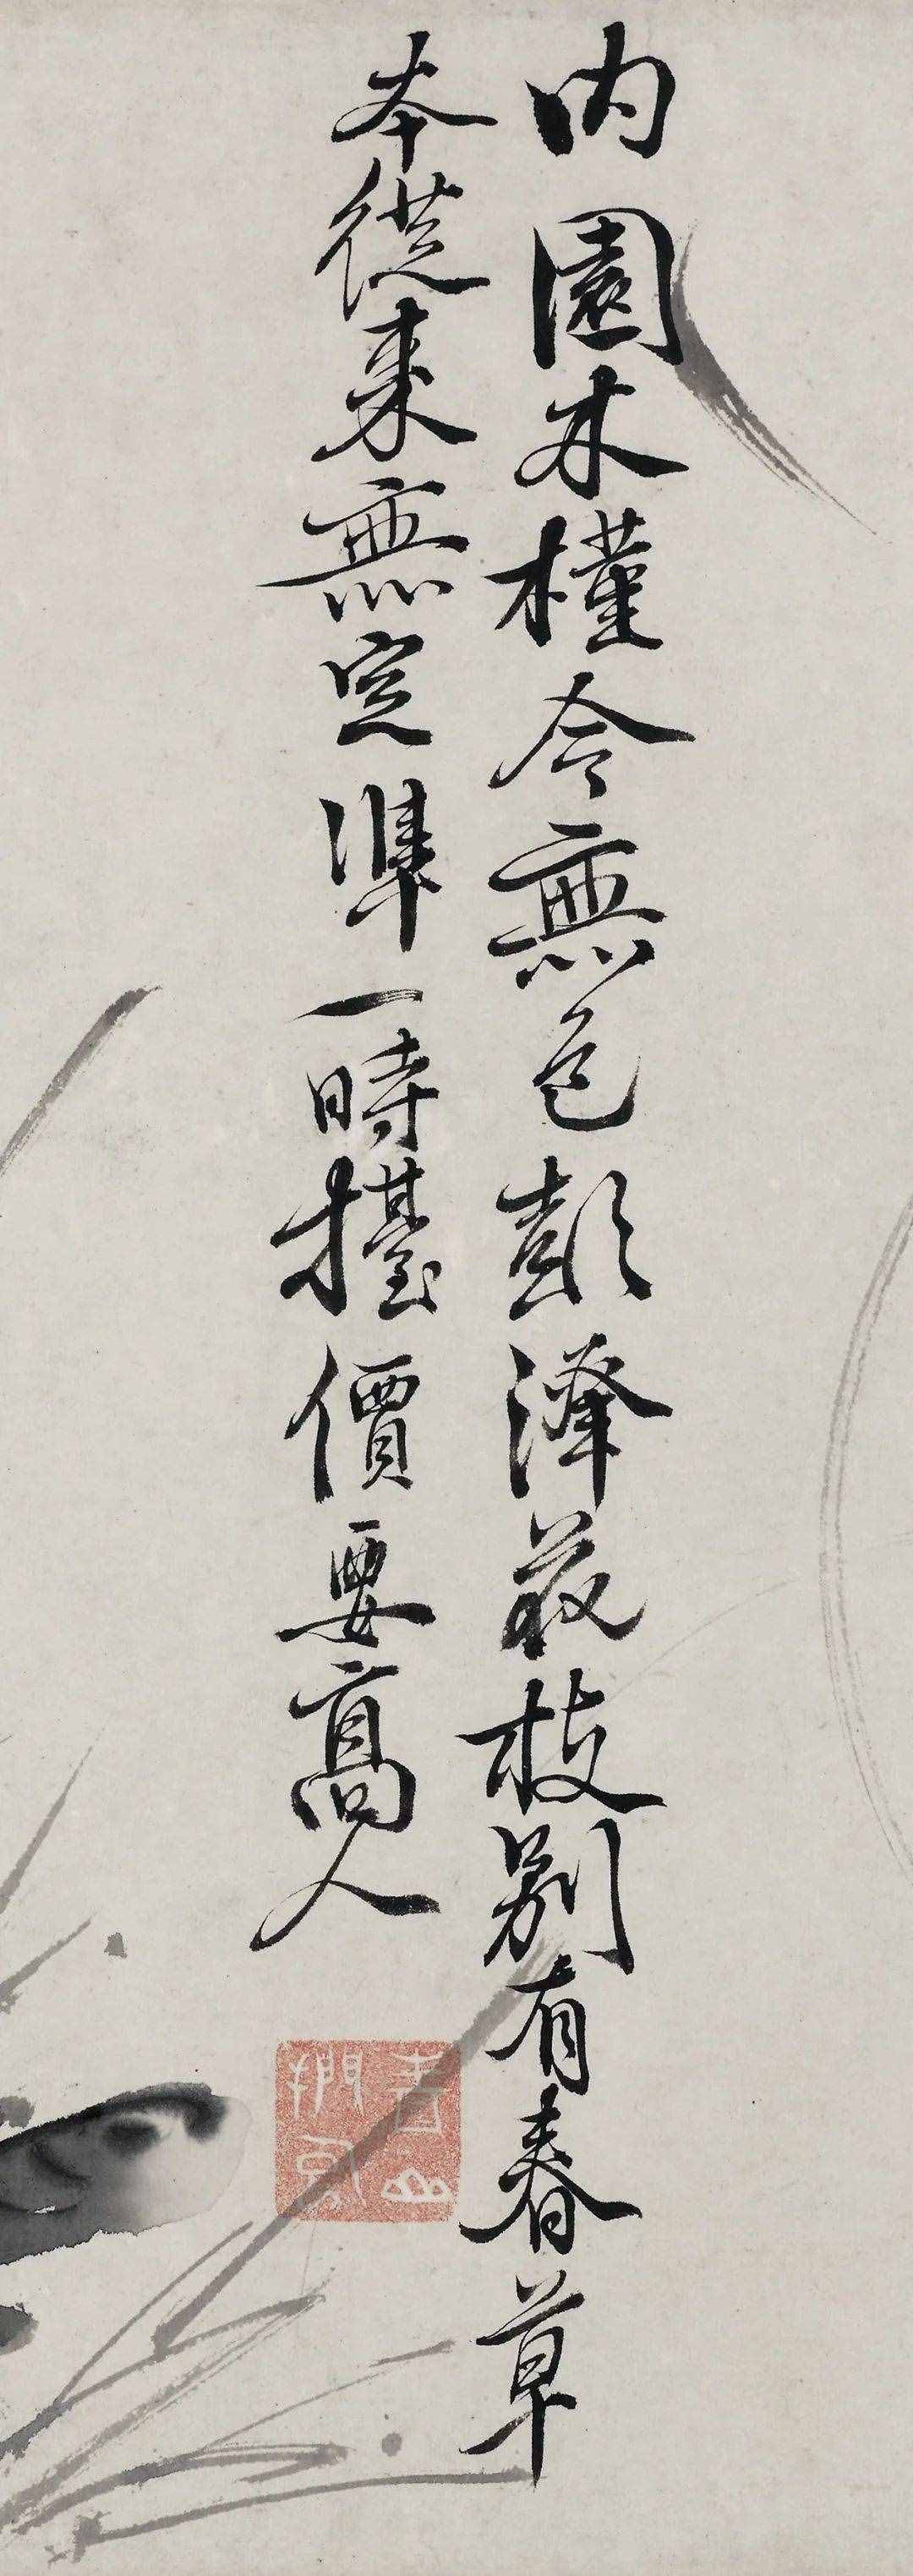 内園木槿今無色彭澤菊枝別有春草
本從來無定準一時擡價要高人